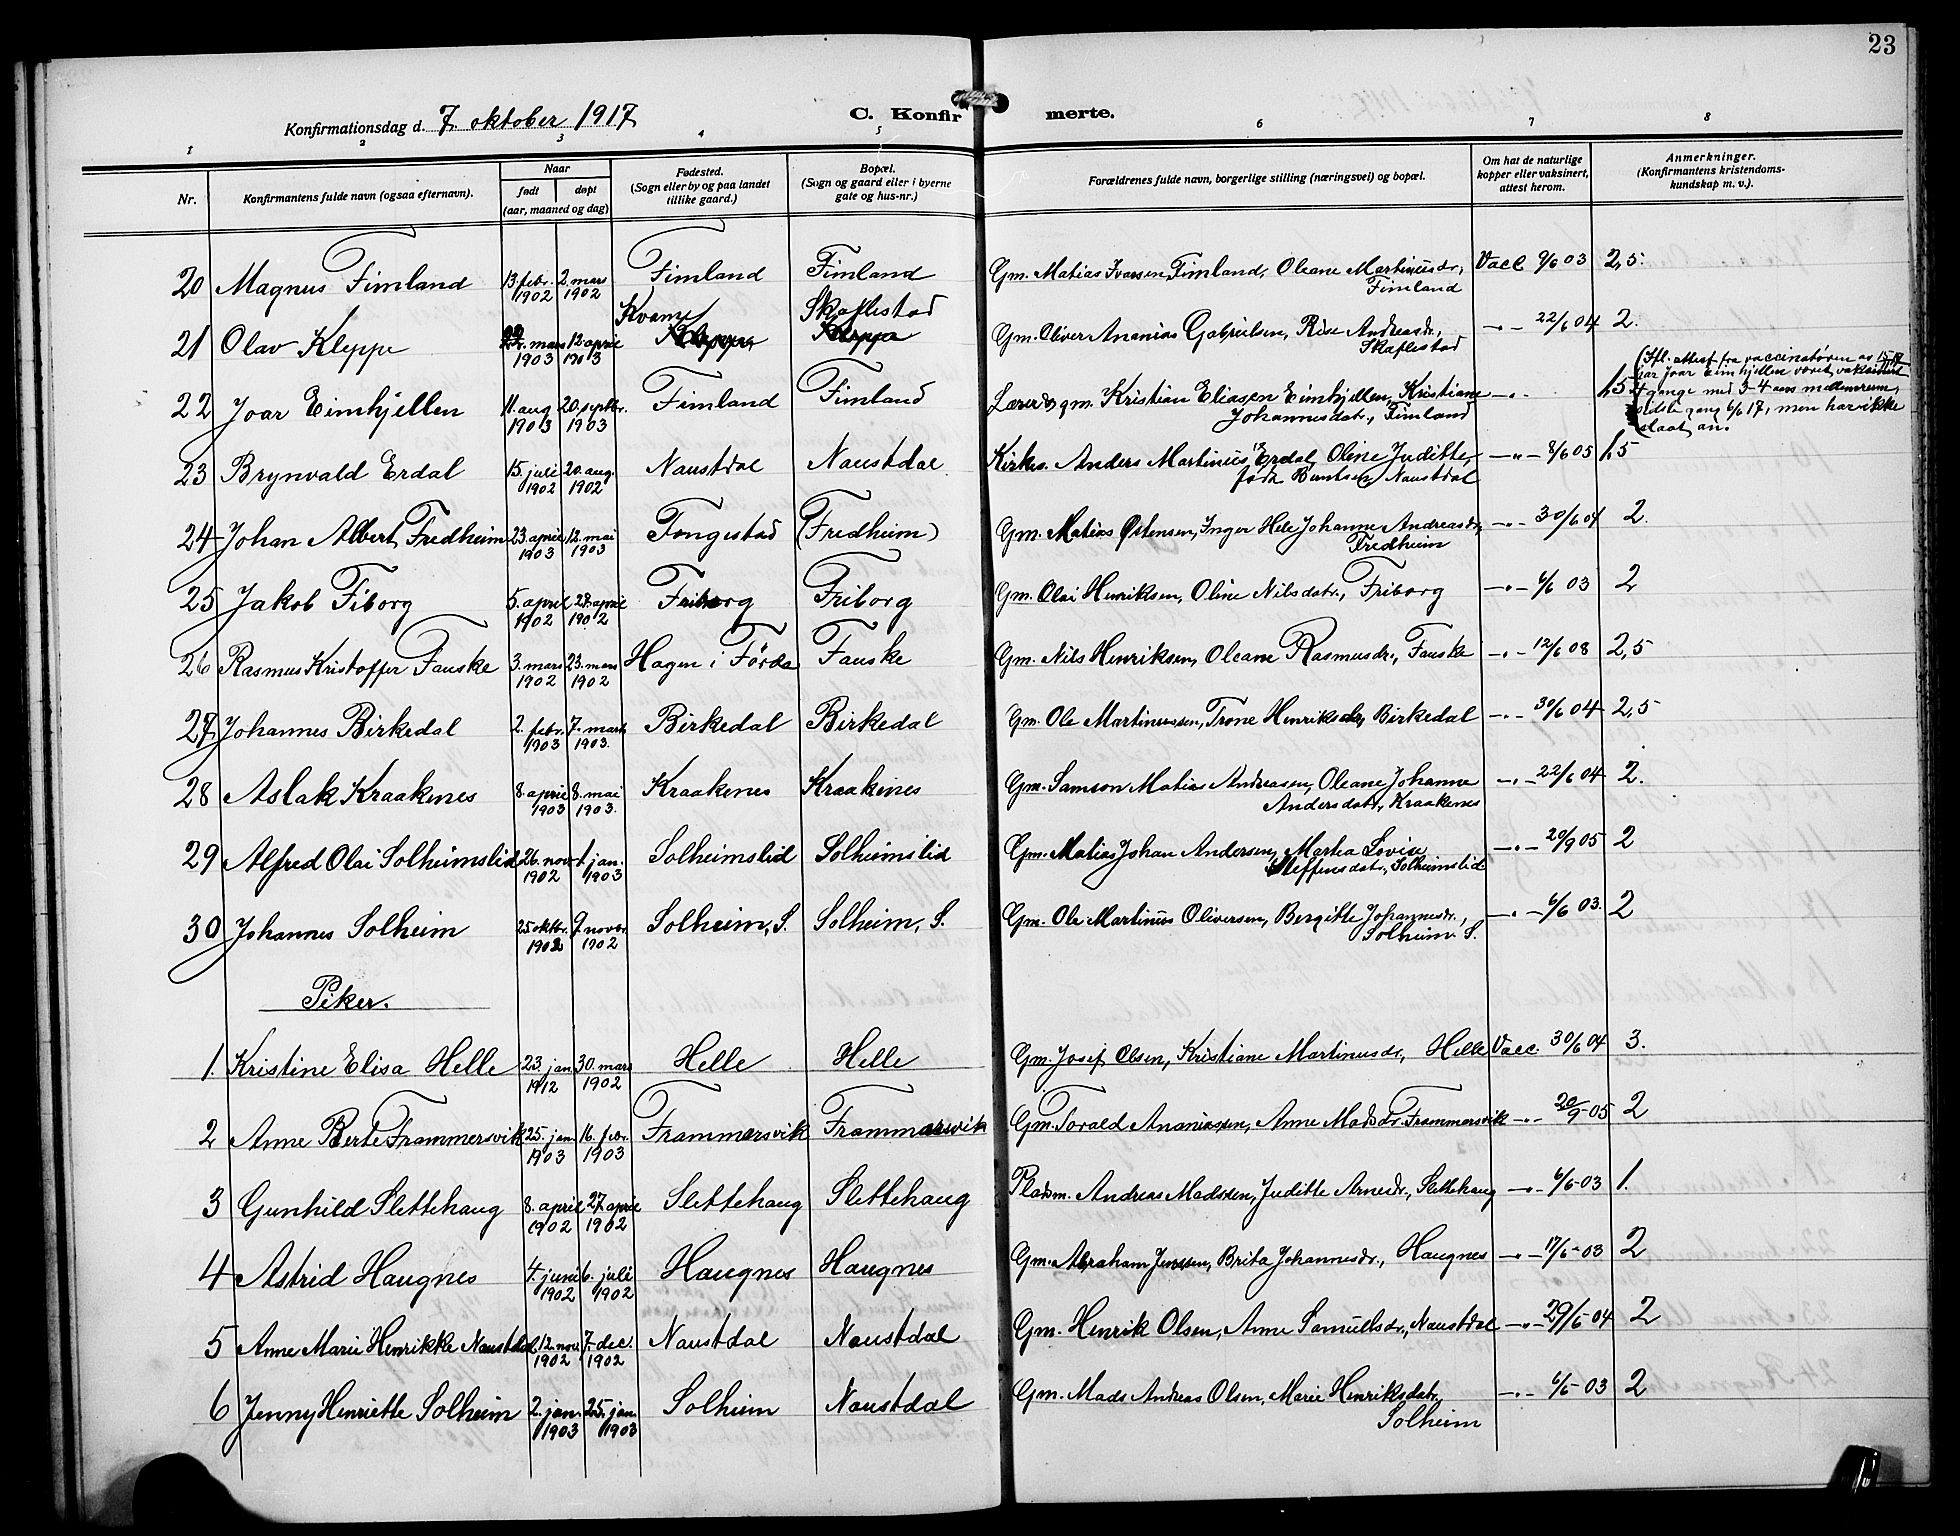 23
Konfirmationsdag d. 7. oktober 1917
C. Konfirmerte.
1 2 3 4 5 6 7 8
Nr.
Konfirmantens fulde navn (ogsaa efternavn).
Naar
født døpt
(aar, maaned og dag)
Fødested.
(Sogn eller by og paa landet
tillike gaard.)
Bopæl.
(Sogn og gaard eller i byerne
gate og hus-nr.)
Forældrenes fulde navn, borgerlige stilling (næringsvei) og bopæl.
Om hat de naturlige
kopper eller vaksinert,
attest herom.
Anmerkninger.
(Konfirmantens kristendoms-
kundskap m. v.).
20 Magnus Fimland 13. febr. 1902 2. mars 1902 Fimland Fimland Gm. Matias Ivarsen Fimland, Oleane Martinusdr., Fimland Vacc 9/6 03 2,5
21 Olav Kleppe mars 1903 12. april 1903 Kvame Skaflestad Gm. Oliver Ananias Gabrielsen, Andreasdr., Skaflestad -"- 22/6 04 2.
22 Joar Eimhjellen 11. aug 1903 20. septbr. 1903 Fimland Fimland Lærer og gm. Kristian Eliasen Eimhjellen, Kristiane Johannesdatr., Fimland -"- 1,5
(Ifl. attest fra vaccinatøren av
har Joar Eimhjellen været vaksinert
4 gange med 3-4 aars mellemrum,
sidste gang 6/6 17, men har ikke
slaat an.
23 Brynvald Erdal 15. juli 1902 20. aug. 1902 Naustdal Naustdal Kirkes. Anders Martinus Erdal, Oline Juditte, født Berntsen, Naustdal -"- 8/6 05 1,5
24 Johan Albert Fredheim 23. april 1903 12. mai 1903 Fongestad (Fredheim) Gm. Matias Østensen, Inger Hele Johanne Andreasdr., Fredheim -"- 30/6 04 2.
25 Jakob Fiborg 5. april 1902 27. april 1902 Friborg Friborg Gm. Olai Henriksen, Oline Nilsdatr., Friborg -"- 6/6 03 2
26 Rasmus Kristoffer Fauske 3. mars 1902 23. mars 1902 Hagen i Førde Fauske Gm. Nils Henriksen, Oleane Rasmusdr., Fauske -"- 12/6 08 2,5
27 Johannes Birkedal 2. febr. 1903 7. mars 1903. Birkedal Birkedal Gm. Ole Martinussen, Trone Henriksdr, Birkedal -"- 30/6 04 2,5
28 Aslak Kraakenes 8. april 1903 8. mai 1903. Kraakenes Kraakenes Gm. Samson Matias Andreasen, Oleane Johanne Andersdatr., Kraakenes -"- 22/6 04 2.
29 Alfred Olai Solheimslid 26. nov 1902 1 jan. 1903 Solheimslid Solheimslid Gm. Matias Johan Andersen, Marta Lovise Steffensdatr., Solheimslid -"- 20/9 05 2
30 Johannes Solheim 25 oktbr. 1902 9 novbr. 1902 Solheim, S. Solheim, S. Gm. Ole Martinus Oliversen, Bergitte Johannesdr., Solheim. S. -"- 6/6 03. 2
Piker.
1. Kristine Elisa Helle 23. jan 1912 30. mars 1902 Helle Helle Gm. Josef Olsen, Kristiane Martinusdr, Helle Vacc. 30/6 04 3.
2 Anne Berte Frammersvik 25. jan 1903 16. febr. 1903 Frammersvik Frammarsvik Gm. Torald Ananiassen, Anne Madsdr. Frammersvik -"- 20/9-05 2
3 Gunhild Slettehaug 8. april 1902 27. april 1902 Slettehaug Slettehaug Pladsm. Andreas Madssen, Juditte Arnesdr., Slettehaug -"- 6/6-03 1.
4 Astrid Haugnes 4. juni 1902 6. juli 1902 Haugnes Haugnes Gm. Abraham Jenssen, Brita Johannesdr., Haugnes -"- 17/6-03 2
5 Anne Marie Henrikke Naustdal 12. nov 1902 7. dec. 1902 Naustdal Naustdal Gm. Henrik Olsen, Anne Samuelsdr., Naustdal -"- 29/6-04 2
6 Jenny Henriette Solheim 2. jan. 1903 25. jan. 1903 Solheim Naustdal Gm. Mads Andreas Olsen, Marie Henriksdatr, Solheim -"- 6/6-03 2